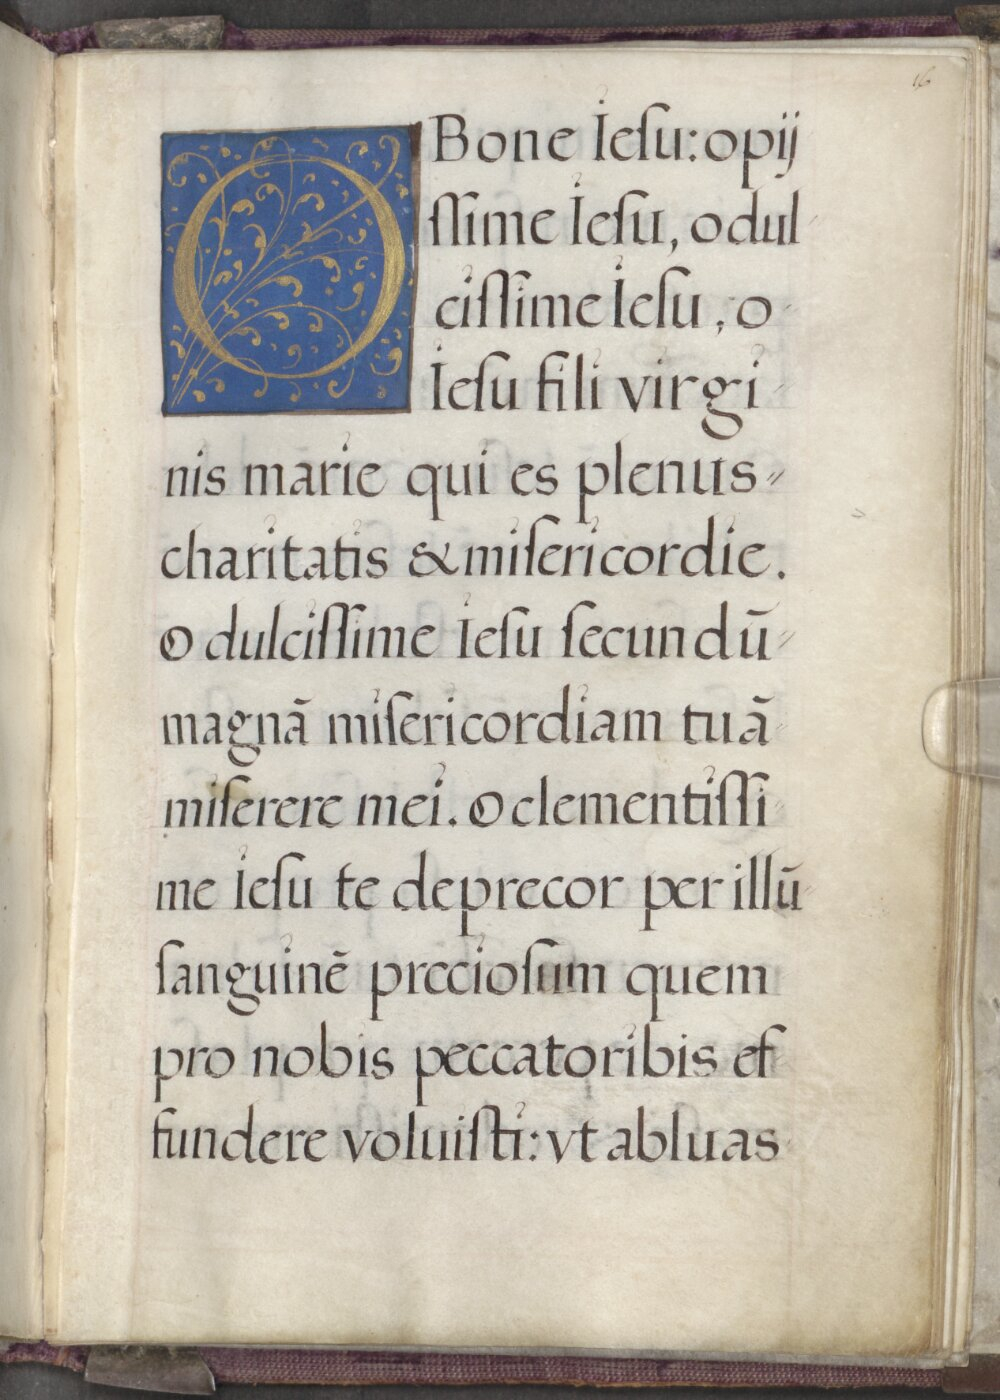 16
O Bone Iesu: o pij
ſſime Iesu, o dul
ciſſime Ieſu, o
Ieſu fili virgi
nis marie qui es plenus
charitatis & miſericordie.
O dulciſſime Ieſu ſecundū
magnā miſericordiam tuā
miſerere mei. O clementiſſi
me Ieſu te deprecor per illū
ſanguinē preciosum quem
pro nobis peccatoribis ef
fundere voluiſti: vt abluas